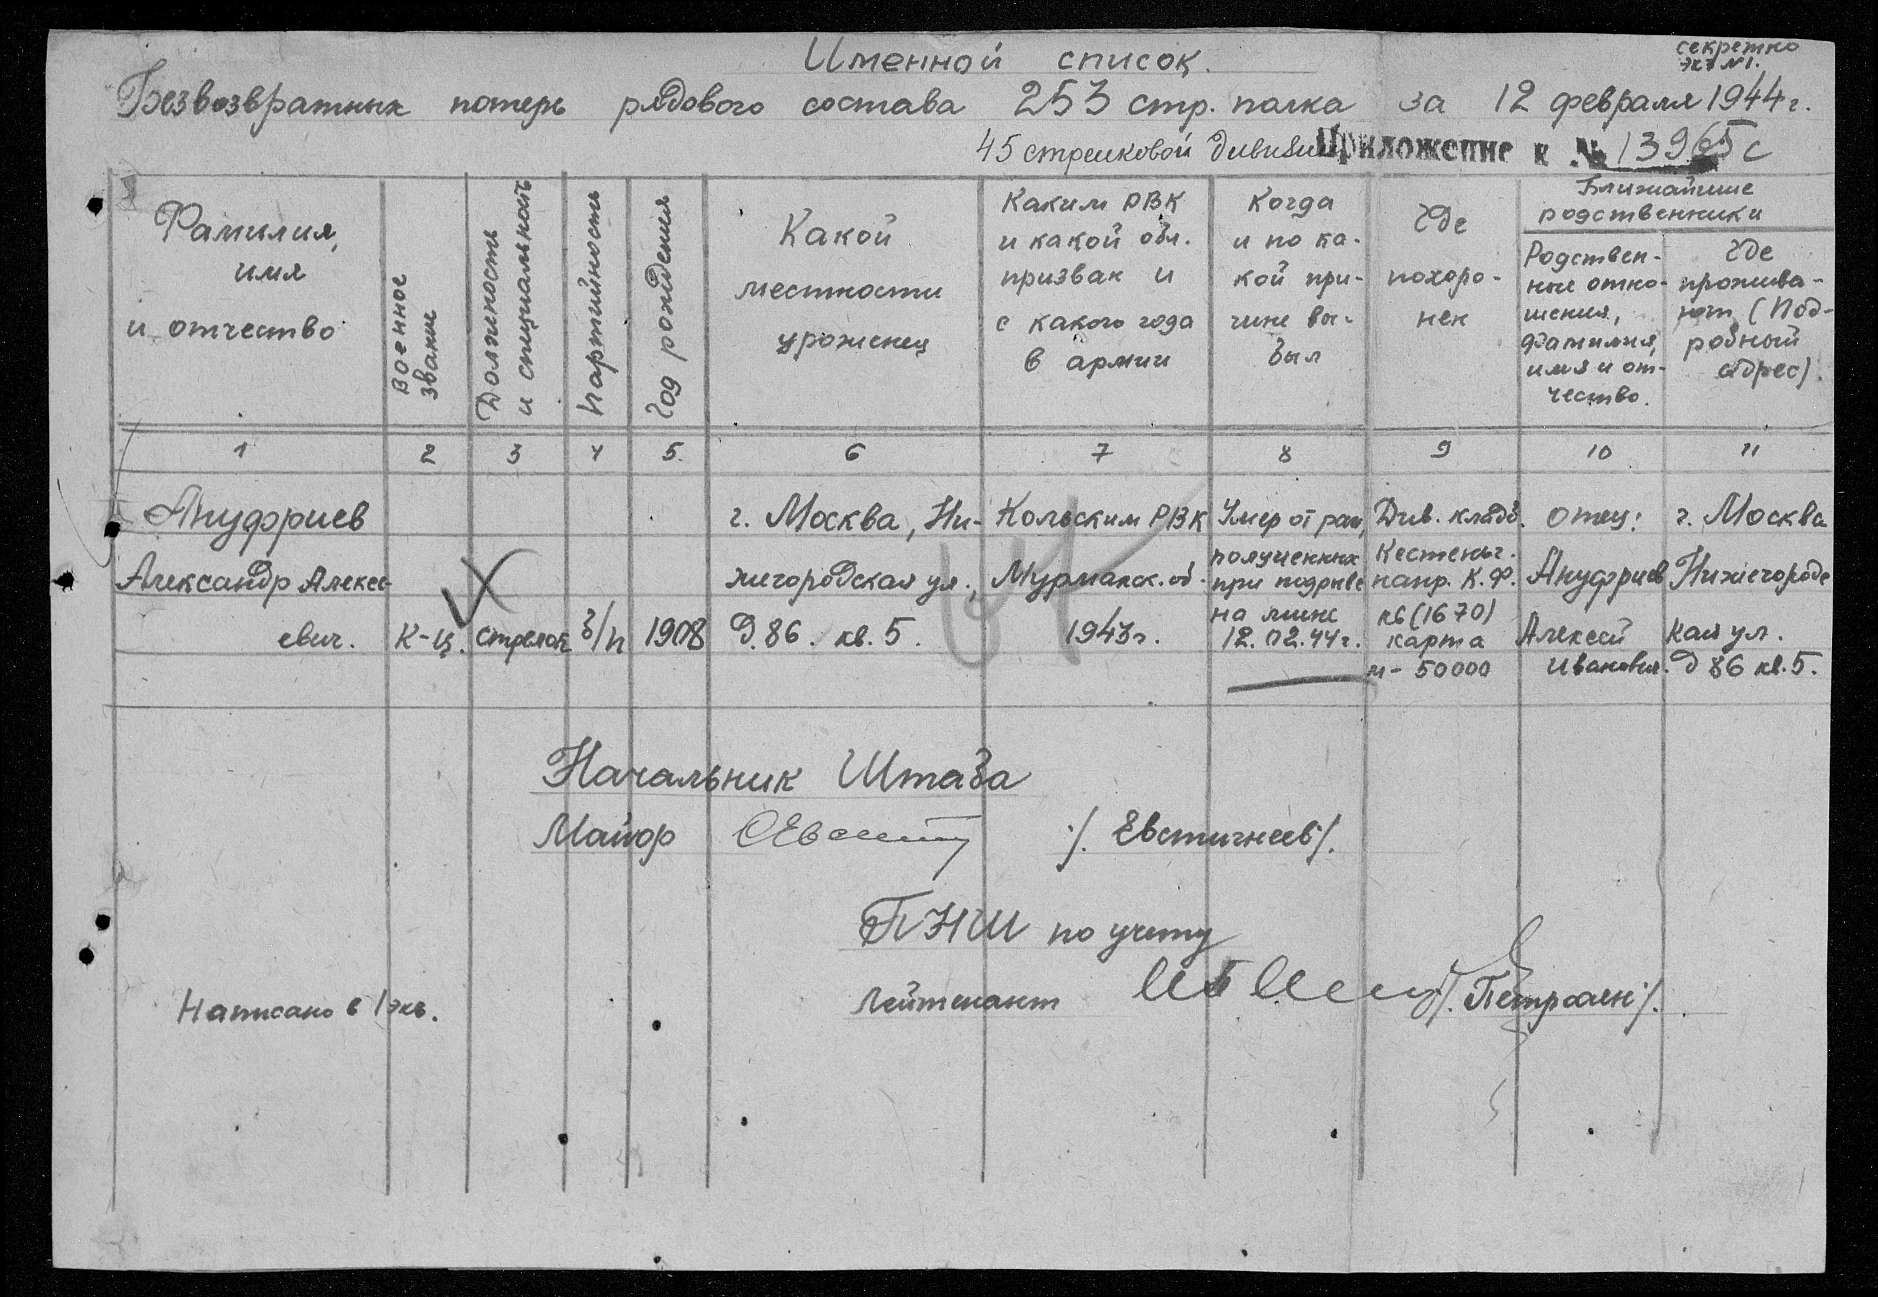 Именной список.
секретно
экз №1.
Безвозвратных потерь рядового состава 253 стр. полка за 12 февраля 1944 г.
45 стрелковой дивизии Приложение к № 13965с
Фамилия,
имя
и отчество
Военное
звание
Должность
и специальность
Партийность
Год рождения
Какой
местности
уроженец
Каким РВК
и какой обл.
призван и
с какого года
в армии
Когда
и по ка-
кой при-
чине вы-
был
Где
похоро-
нен
Ближайшие
родственники
Родствен-
ные отно-
шения,
фамилия,
имя и от-
чество.
Где
прожива-
ют (Под-
робный
адрес).
1 2 3 4 5. 6 7 8 9 10 11
Ануфриев
Александр Алексе-
евич.
К-ц.
стрелок
б/п
1908
г. Москва, Ни-
жегородская ул.,
д. 86. кв. 5.
Кольским РВК
Мурманск. об.
1943г.
Умер от ран,
полученных
при подрыве
на мине
12.02.44г.
Див. кладб.
Кестеньг.
напр. К.Ф.
кв (1670)
карта
м- 50000
отец:
Ануфриев
Алексей
Иванович.
г. Москва
Нижегородс
кая ул.
д 86 кв. 5.
Начальник Штаба
Майор /. Евстигнеев/.
ПНШ по учету
Лейтенант /. Петросян/.
Написано в 1 экз.